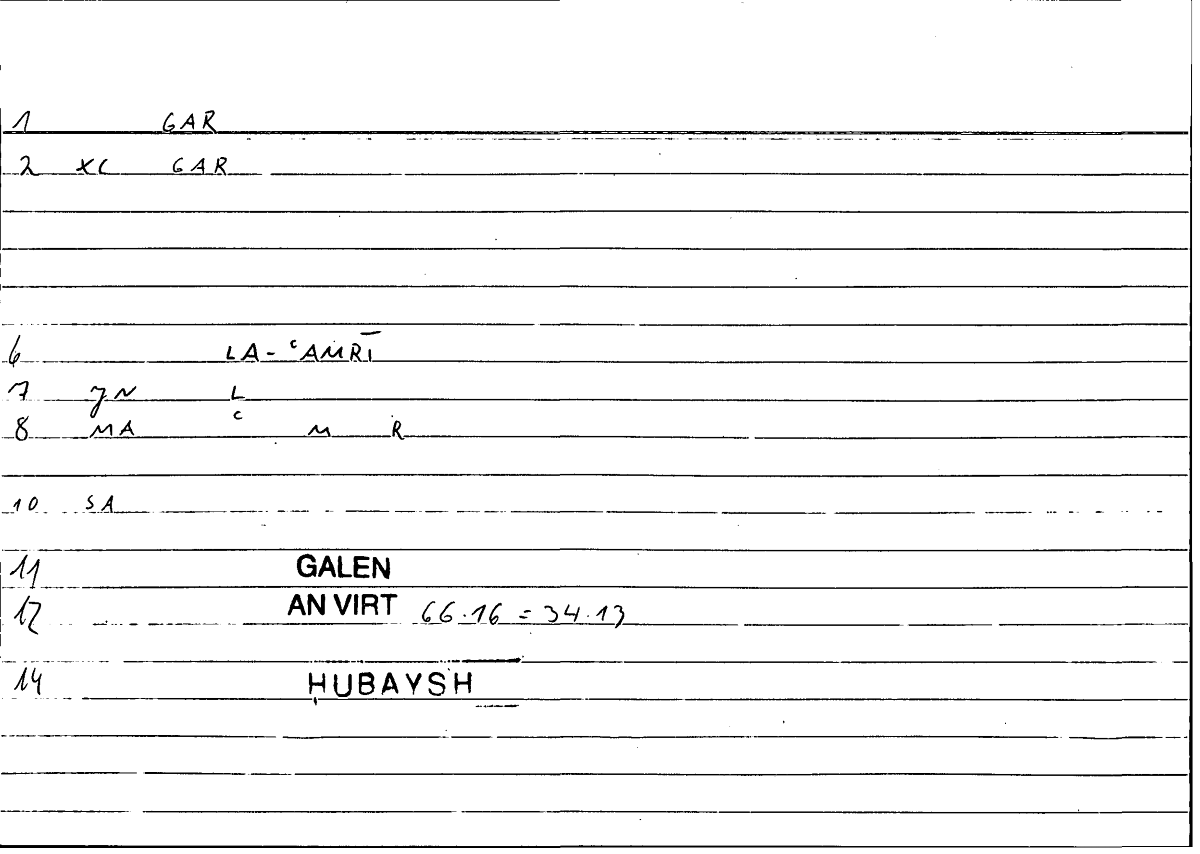 1 GAR
2 XC GAR
6 LA-ᶜAMRĪ
7 JN L
8 MA ᶜ M R
10 SA
11 GALEN
12 AN VIRT 66.16 = 34.13
14 ḤUBAYSH